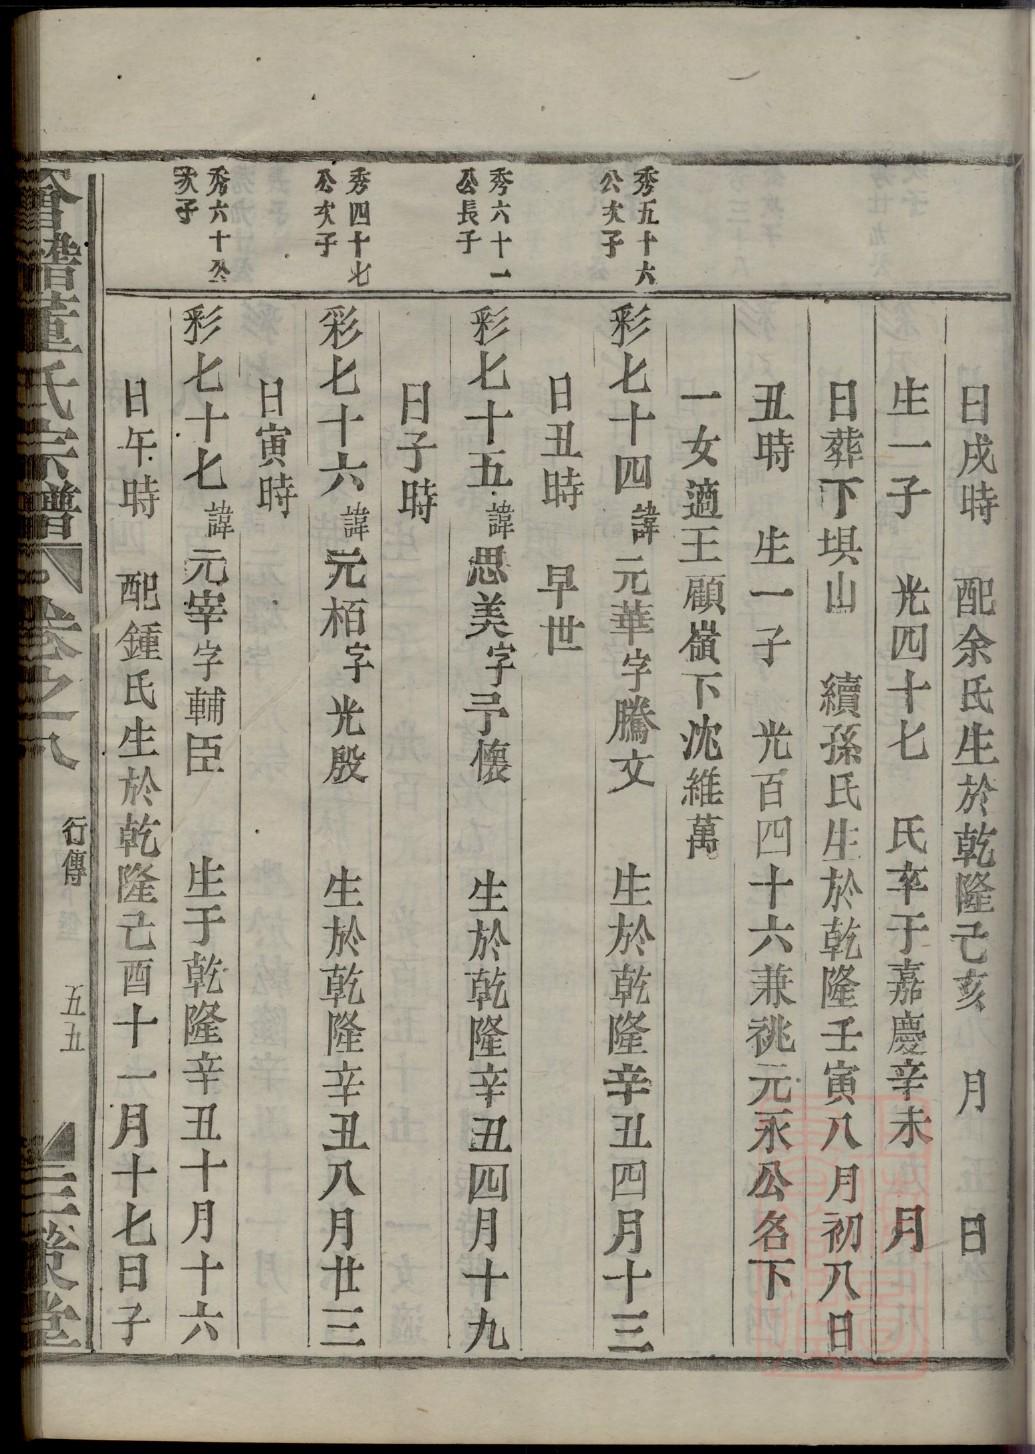 日戌時 配余氏生於乾隆己亥 月 日
生一子 光四十七 氏卒于嘉慶辛未 月
日葬下埧山 續孫氏生於乾隆壬寅八月初八日
丑時 生一子 光百四十六兼祧元永公名下
一女適王顧嶺下沈維萬
秀五十六
公次子
彩七十四諱元華字騰文 生於乾隆辛丑四月十三
日丑時 早世
秀六十一
公長子
彩七十五諱思美字予懷 生於乾隆辛丑四月十九
日子時
秀四十七
公次子
彩七十六諱元栢字光殷 生於乾隆辛丑八月廿三
日寅時
秀六十公
次子
彩七十七諱元宰字輔臣 生于乾隆辛丑十月十六
日午時 配鍾氏生於乾隆己酉十一月十七日子
董氏宗譜 卷之八 行傳 五五 三策堂